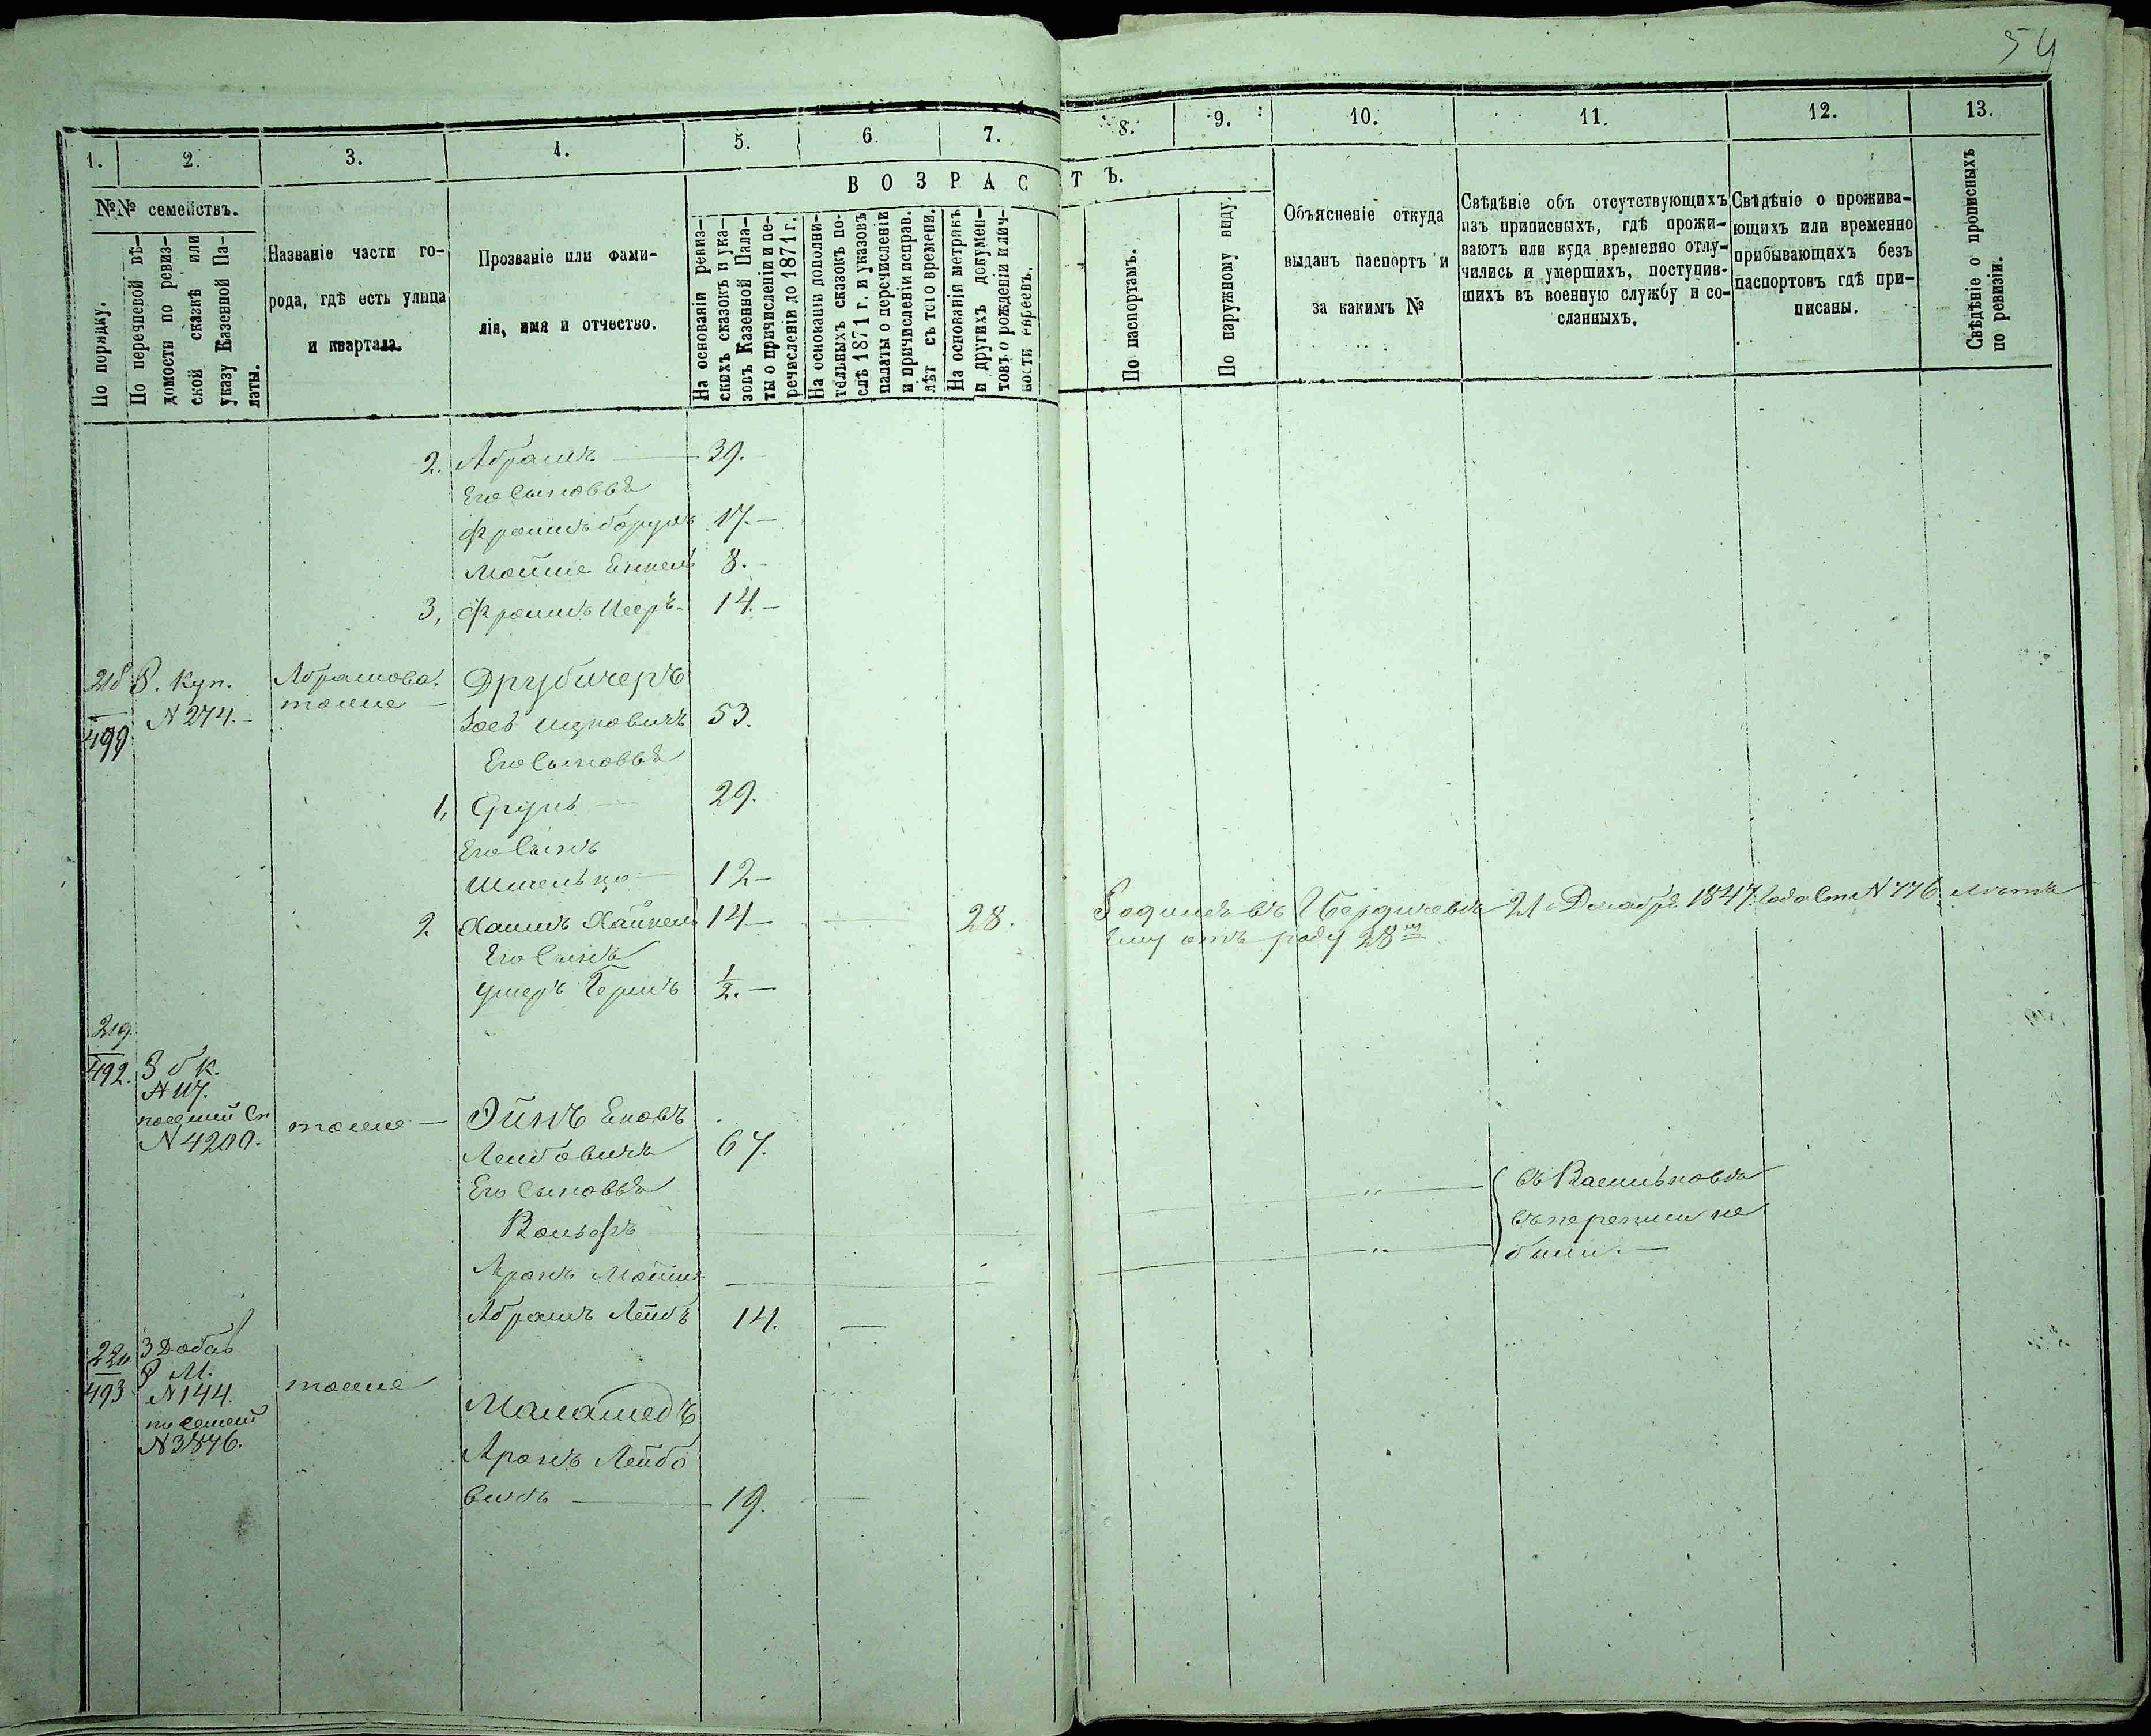 54
1. 2. 3. 4. 5. 6. 7. 8. 9. 10. 11. 12. 13.
№№ семействъ.
По порядку.
По перечневой вѣ-
домости по ревиз-
ской сказкѣ или
указу Казенной Па-
латы.
Названіе части го-
рода, гдѣ есть улица
и квартала.
Прозваніе или фами-
лія, имя и отчество.
ВОЗРАСТЪ.
На основаніи ревиз-
скихъ сказокъ и ука-
зовъ Казенной Пала-
ты о причисленіи и пе-
речисленіи до 1871 г.
На основаніи дополни-
тельныхъ сказокъ по-
слѣ 1871 г. и указовъ
палаты о перечисленіи
и причисленіи исправ.
лѣт съ того времени.
На основаніи метрикъ
и другихъ докумен-
товъ о рожденіи и лич-
ности евреевъ.
По паспортамъ.
По наружному виду.
Объясненіе откуда
выданъ паспортъ и
за какимъ №
Свѣдѣніе объ отсутствующихъ
изъ приписныхъ, гдѣ прожи-
ваютъ или куда временно отлу-
чились и умершихъ, поступив-
шихъ въ военную службу и со-
сланныхъ.
Свѣдѣніе о прожива-
ющихъ или временно
прибывающихъ безъ
паспортовъ гдѣ при-
писаны.
Свѣдѣніе о прописныхъ
по ревизіи.
2. Абрамъ — 39.
Его Сыновья
Фроимъ Борухъ 17. —
Мошко Янкель 8. —
3, Фроимъ 14. —
218 Р. Куп. Абрамова.
499 N 274. — тоже — 53.
Его Сыновья
1, Сруль — 29.
Его Сынъ
12 —
2. Хаимъ 14 — 28. Родился въ Бердичевѣ 21 Декабря 1847. Года Ст. N 776. лѣтъ
Ему отъ роду 28
Его Сынъ
Ушеръ Бершъ 1/2. —
219.
492. 3 б к.
N 117.
N 4200. тоже — Эйнъ
Лейбовичъ 67.
Его Сыновья
Вольфъ — " — въ Васильковѣ
въ переписи не
Аронъ Мошко — " — были. —
Абрамъ Лейбъ 14. —
220 3 Добав
493 Р М.
N 144. тоже
по семей
N 3876.
Аронъ Лейбо
вичъ — 19. —